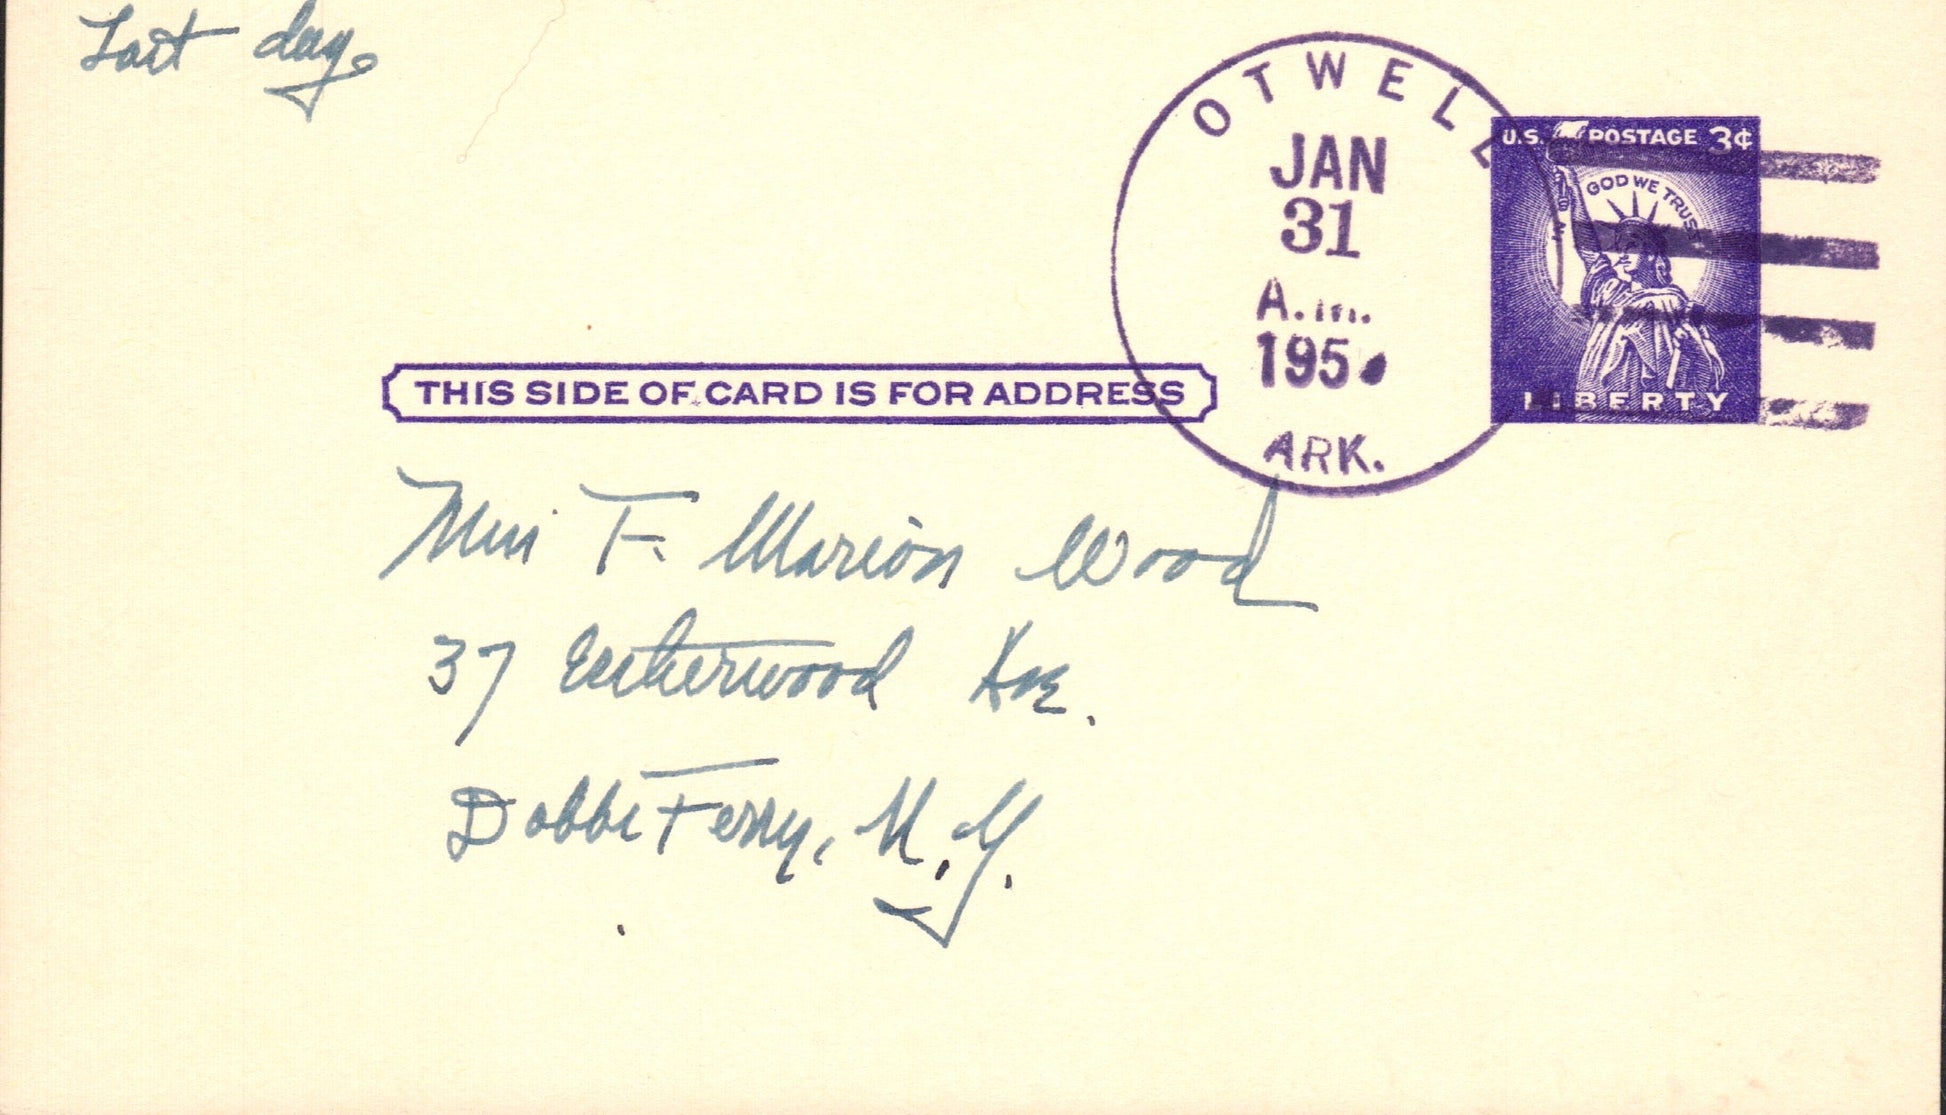 Last day.
OTWELL
JAN
31
A.M.
195
ARK.
U.S. POSTAGE 3¢
IN GOD WE TRUST
LIBERTY
THIS SIDE OF CARD IS FOR ADDRESS
Miss F. Marion Wood
37 Estherwood Ave.
Dobbs Ferry, N.Y.